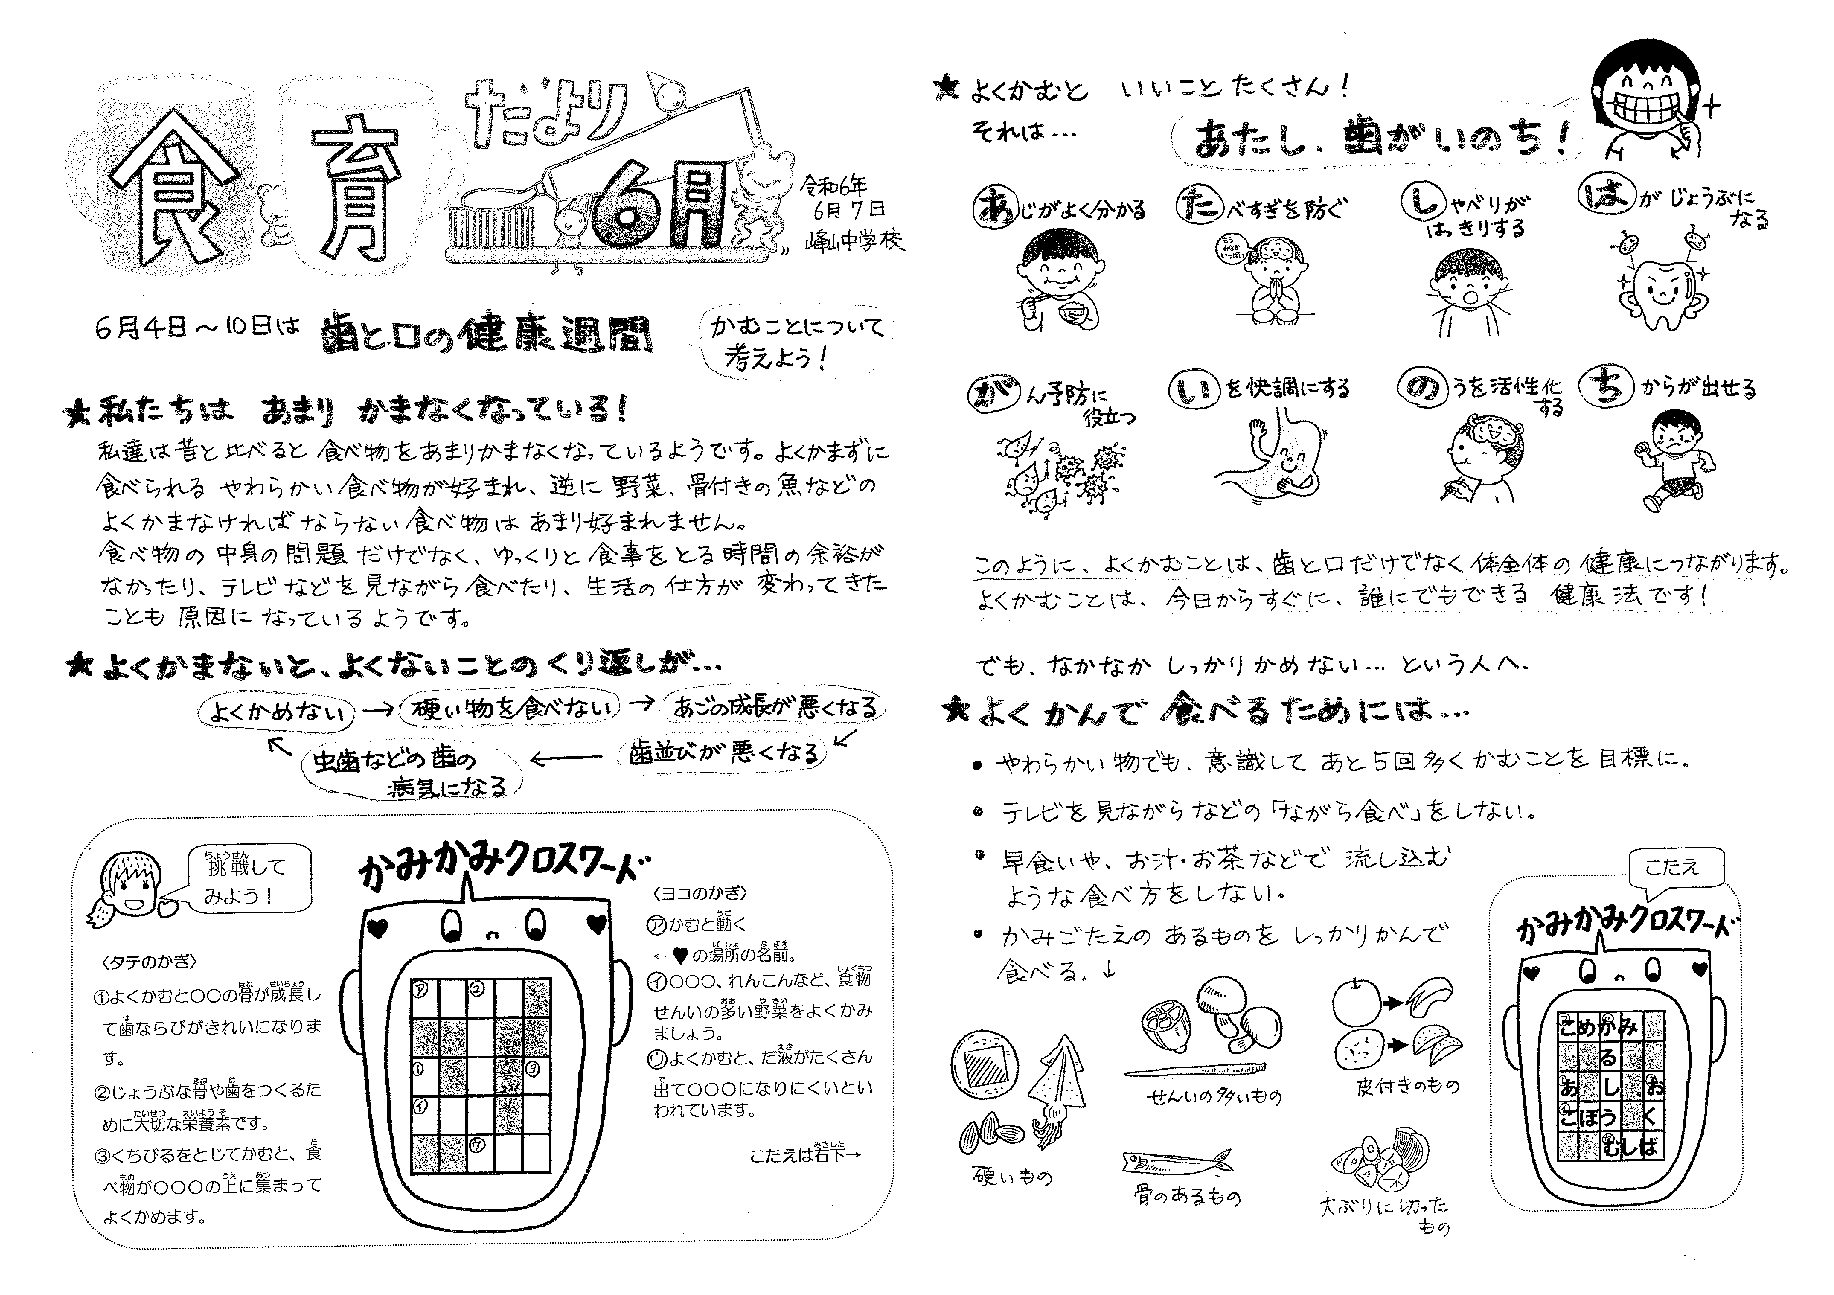 食育だより 6月
令和6年
6月7日
峰山中学校
6月4日～10日は 歯と口の健康週間
かむことについて
考えよう！
★私たちは あまり かまなくなっている！
私達は昔と比べると食べ物をあまりかまなくなっているようです。よくかまずに
食べられる やわらかい食べ物が好まれ、逆に 野菜、骨付きの魚などの
よくかまなければならない食べ物は あまり好まれません。
食べ物の 中身の問題 だけでなく、ゆっくりと 食事をとる時間の余裕が
なかったり、テレビなどを見ながら食べたり、生活の仕方が 変わってきた
ことも 原因に なっているようです。
★よくかまないと、よくないことのくり返しが…
よくかめない → 硬い物を食べない → あごの成長が悪くなる
歯並びが悪くなる
虫歯などの歯の
病気になる
挑戦して
みよう！
かみかみクロスワード
〈タテのかぎ〉
①よくかむと○○の骨が成長し
て歯ならびがきれいになりま
す。
②じょうぶな骨や歯をつくるた
めに大切な栄養素です。
③くちびるをとじてかむと、食
べ物が○○○の上に集まって
よくかめます。
〈ヨコのかぎ〉
㋐かむと動く
←♥の場所の名前。
㋑○○○、れんこんなど、食物
せんいの多い野菜をよくかみ
ましょう。
㋒よくかむと、だ液がたくさん
出て○○○になりにくいとい
われています。
こたえは右下→
★よくかむと いいこと たくさん！
それは…
あたし、歯がいのち！
あじがよく分かる
たべすぎを防ぐ
しゃべりが
はっきりする
はが じょうぶに
なる
がん予防に
役立つ
いを快調にする
のうを活性化
する
ちからが出せる
このように、よくかむことは、歯と口だけでなく体全体の健康につながります。
よくかむことは、今日からすぐに、誰にでもできる 健康法です！
でも、なかなか しっかりかめない… という人へ。
★よく かんで 食べるためには…
・やわらかい物でも、意識して あと5回多くかむことを目標に。
・テレビを見ながらなどの「ながら食べ」をしない。
・早食いや、お汁・お茶などで 流し込む
ような食べ方をしない。
・かみごたえの あるものを しっかりかんで
食べる。↓
硬いもの
せんいの多いもの
骨のあるもの
皮付きのもの
大ぶりに切った
もの
こたえ
かみかみクロスワード
こめかみ
る
あ し お
ごぼう く
むしば